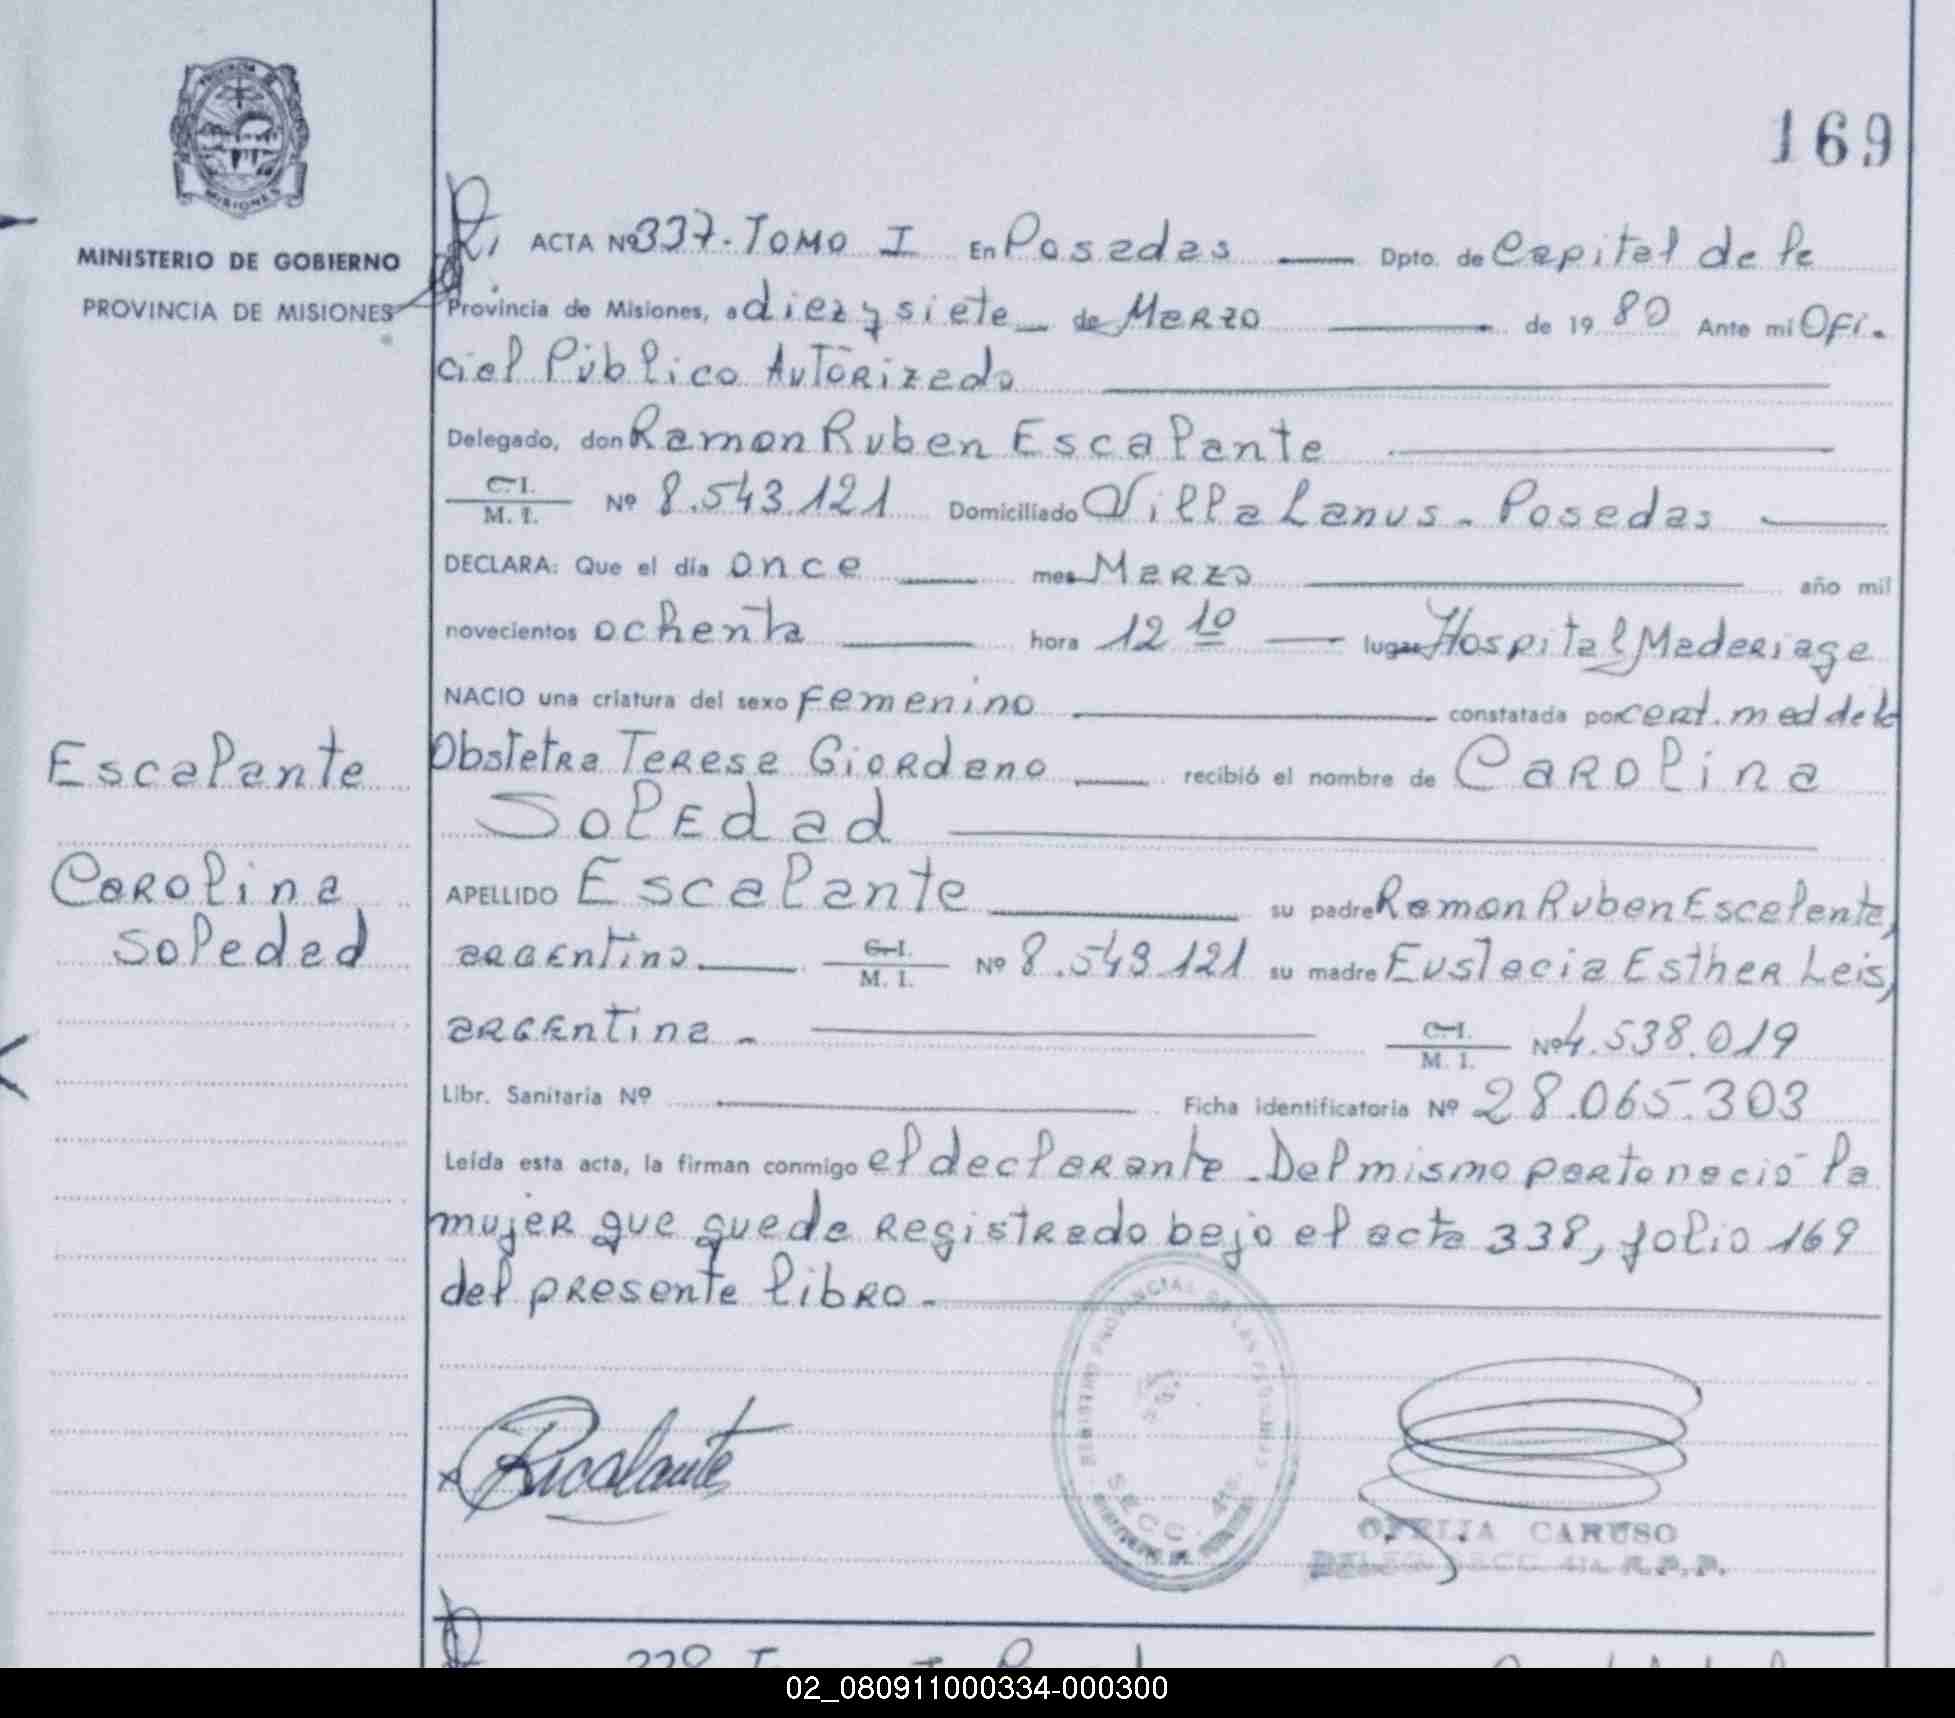 169
MINISTERIO DE GOBIERNO
PROVINCIA DE MISIONES
ACTA Nº 337. TOMO I En Posadas Dpto. de Capital de la
Provincia de Misiones, a diez y siete de Marzo de 1980 Ante mi Ofi-
cial Público Autorizado
Delegado, don Ramon Ruben Escalante
C.I. M. I. Nº 8.543.121 Domiciliado Villa Lanus - Posadas
DECLARA: Que el día once mes Marzo año mil
novecientos ochenta hora 12 10 lugar Hospital Madariaga
NACIO una criatura del sexo femenino constatada por cert. med de la
Obstetra Teresa Giordano recibió el nombre de Carolina
Soledad
APELLIDO Escalante su padre Ramon Ruben Escalante,
argentino C.I. M. I. Nº 8.543.121 su madre Eustacia Esther Leis,
argentina - C.I. M. I. Nº 4.538.019
Libr. Sanitaria Nº Ficha identificatoria Nº 28.065.303
Leída esta acta, la firman conmigo el declarante - Del mismo parto nació la
mujer que queda registrado bajo el acta 338, folio 169
del presente libro -
Escalante
Carolina
Soledad
Escalante
REGISTRO PROVINCIAL DE LAS PERSONAS
SECC. 4ta.
OFELIA CARUSO
DELEG. SECC. 4ta. R.P.P.
02_080911000334-000300